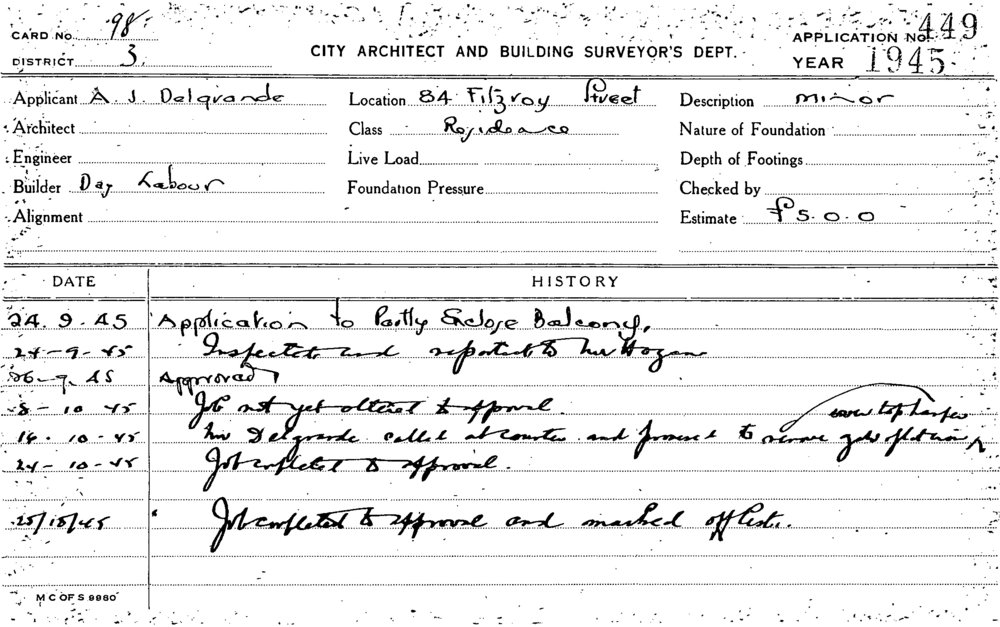 CARD NO. 98.
APPLICATION NO. 449
DISTRICT 3.
CITY ARCHITECT AND BUILDING SURVEYOR'S DEPT.
YEAR 1945
Applicant A. J. Delgrande Location 84 Fitzroy Street Description minor
Architect Class Residence Nature of Foundation
Engineer Live Load Depth of Footings
Builder Day Labour Foundation Pressure Checked by
Alignment Estimate £5.0.0
DATE HISTORY
24. 9. 45 Application to Partly Enclose Balcony.
24-9-45 Inspected and reported to Mr Hogan
26-9-45 Approved
8-10-45 Job not yet altered to approval.
over top
16-10-45 Mr Delgrande called at counter and promised to
24-10-45 Job completed to approval.
25/10/45 Job completed to approval and marked off list.
M C OF S 9960